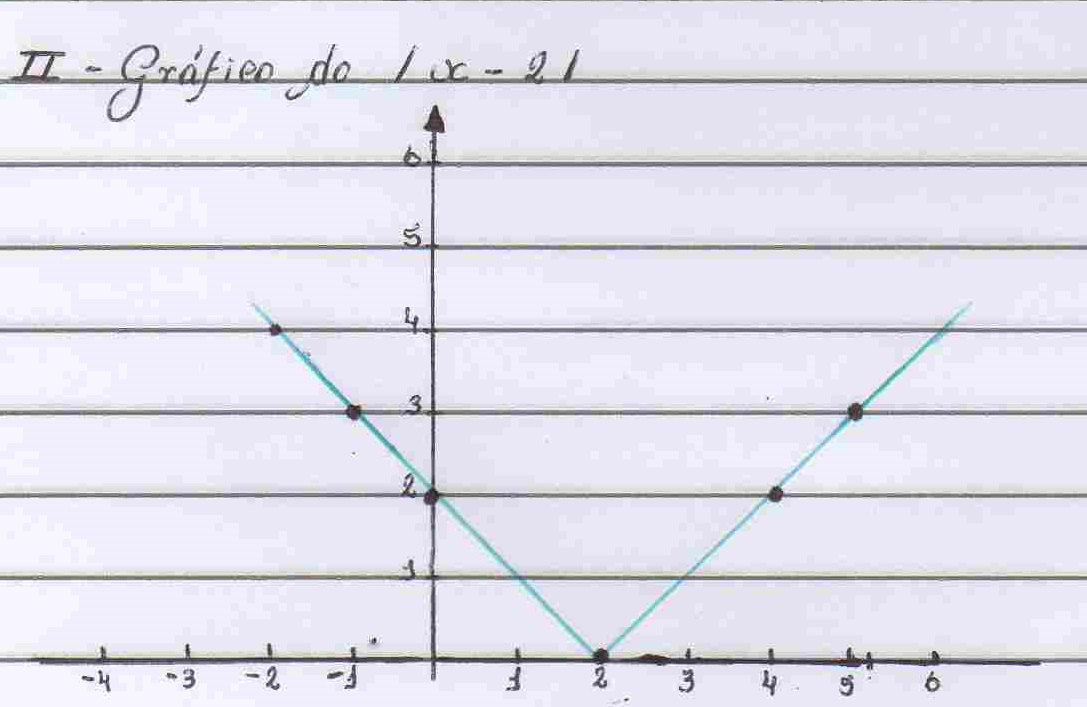 II - Gráfico do |x - 2|
6
5
4
3
2
1
-4 -3 -2 -1 1 2 3 4 5 6